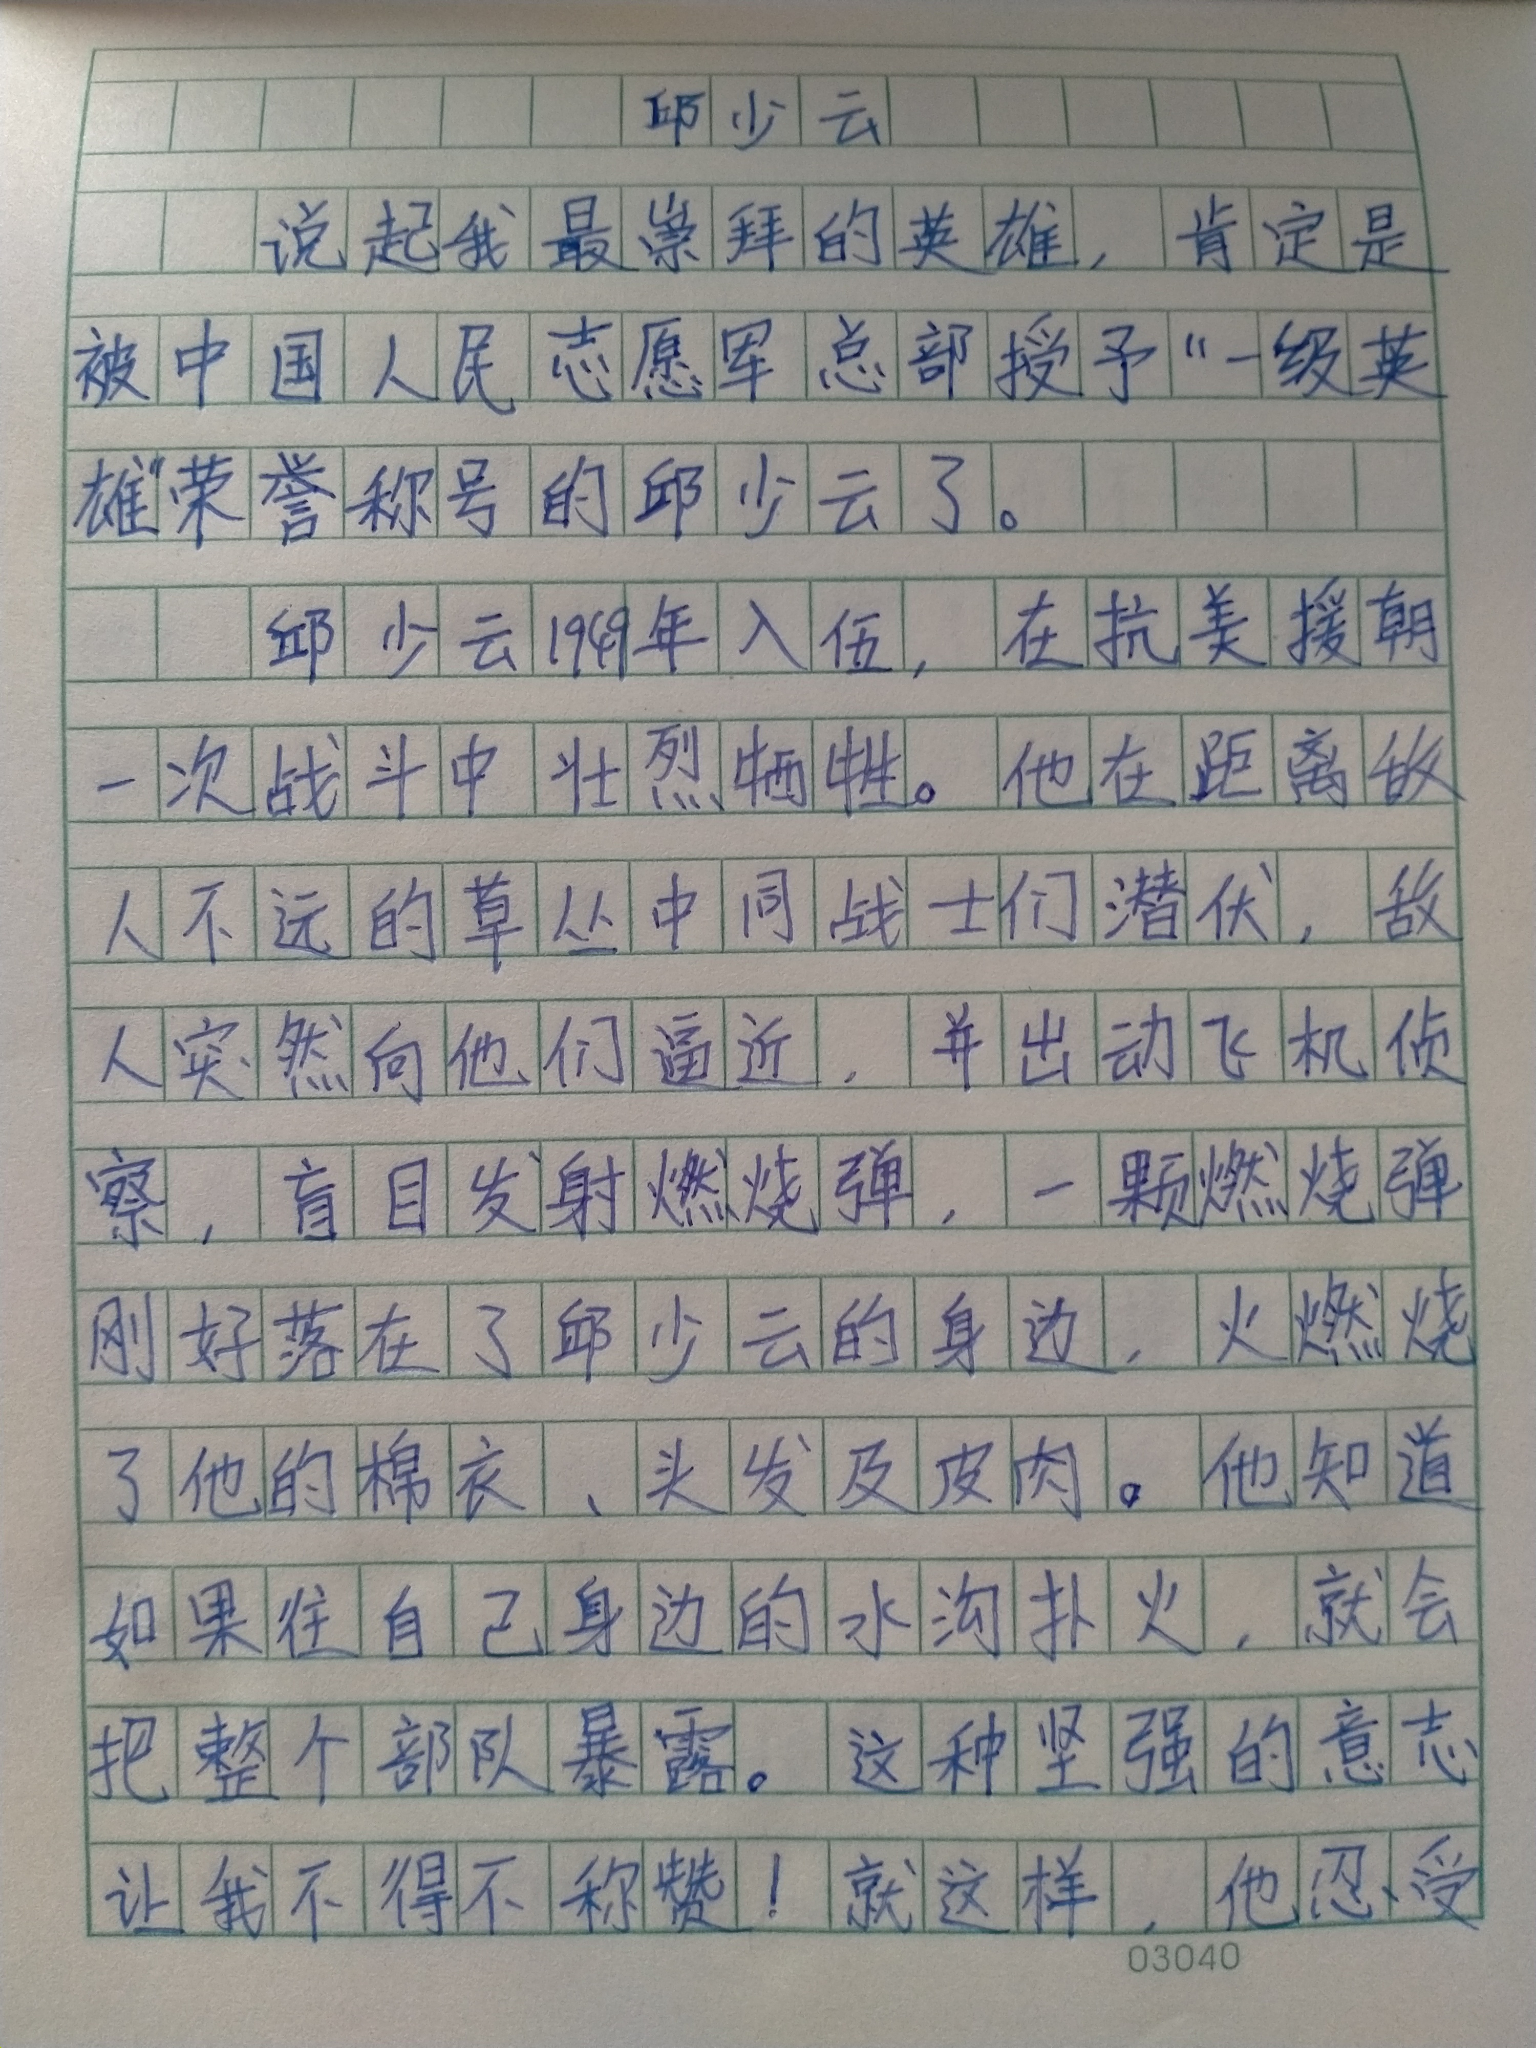 邱少云
说起我最崇拜的英雄，肯定是
被中国人民志愿军总部授予“一级英
雄”荣誉称号的邱少云了。
邱少云1949年入伍，在抗美援朝
一次战斗中壮烈牺牲。他在距离敌
人不远的草丛中同战士们潜伏，敌
人突然向他们逼近，并出动飞机侦
察，盲目发射燃烧弹，一颗燃烧弹
刚好落在了邱少云的身边，火燃烧
了他的棉衣、头发及皮肉。他知道
如果往自己身边的水沟扑火，就会
把整个部队暴露。这种坚强的意志
让我不得不称赞！就这样，他忍受
03040